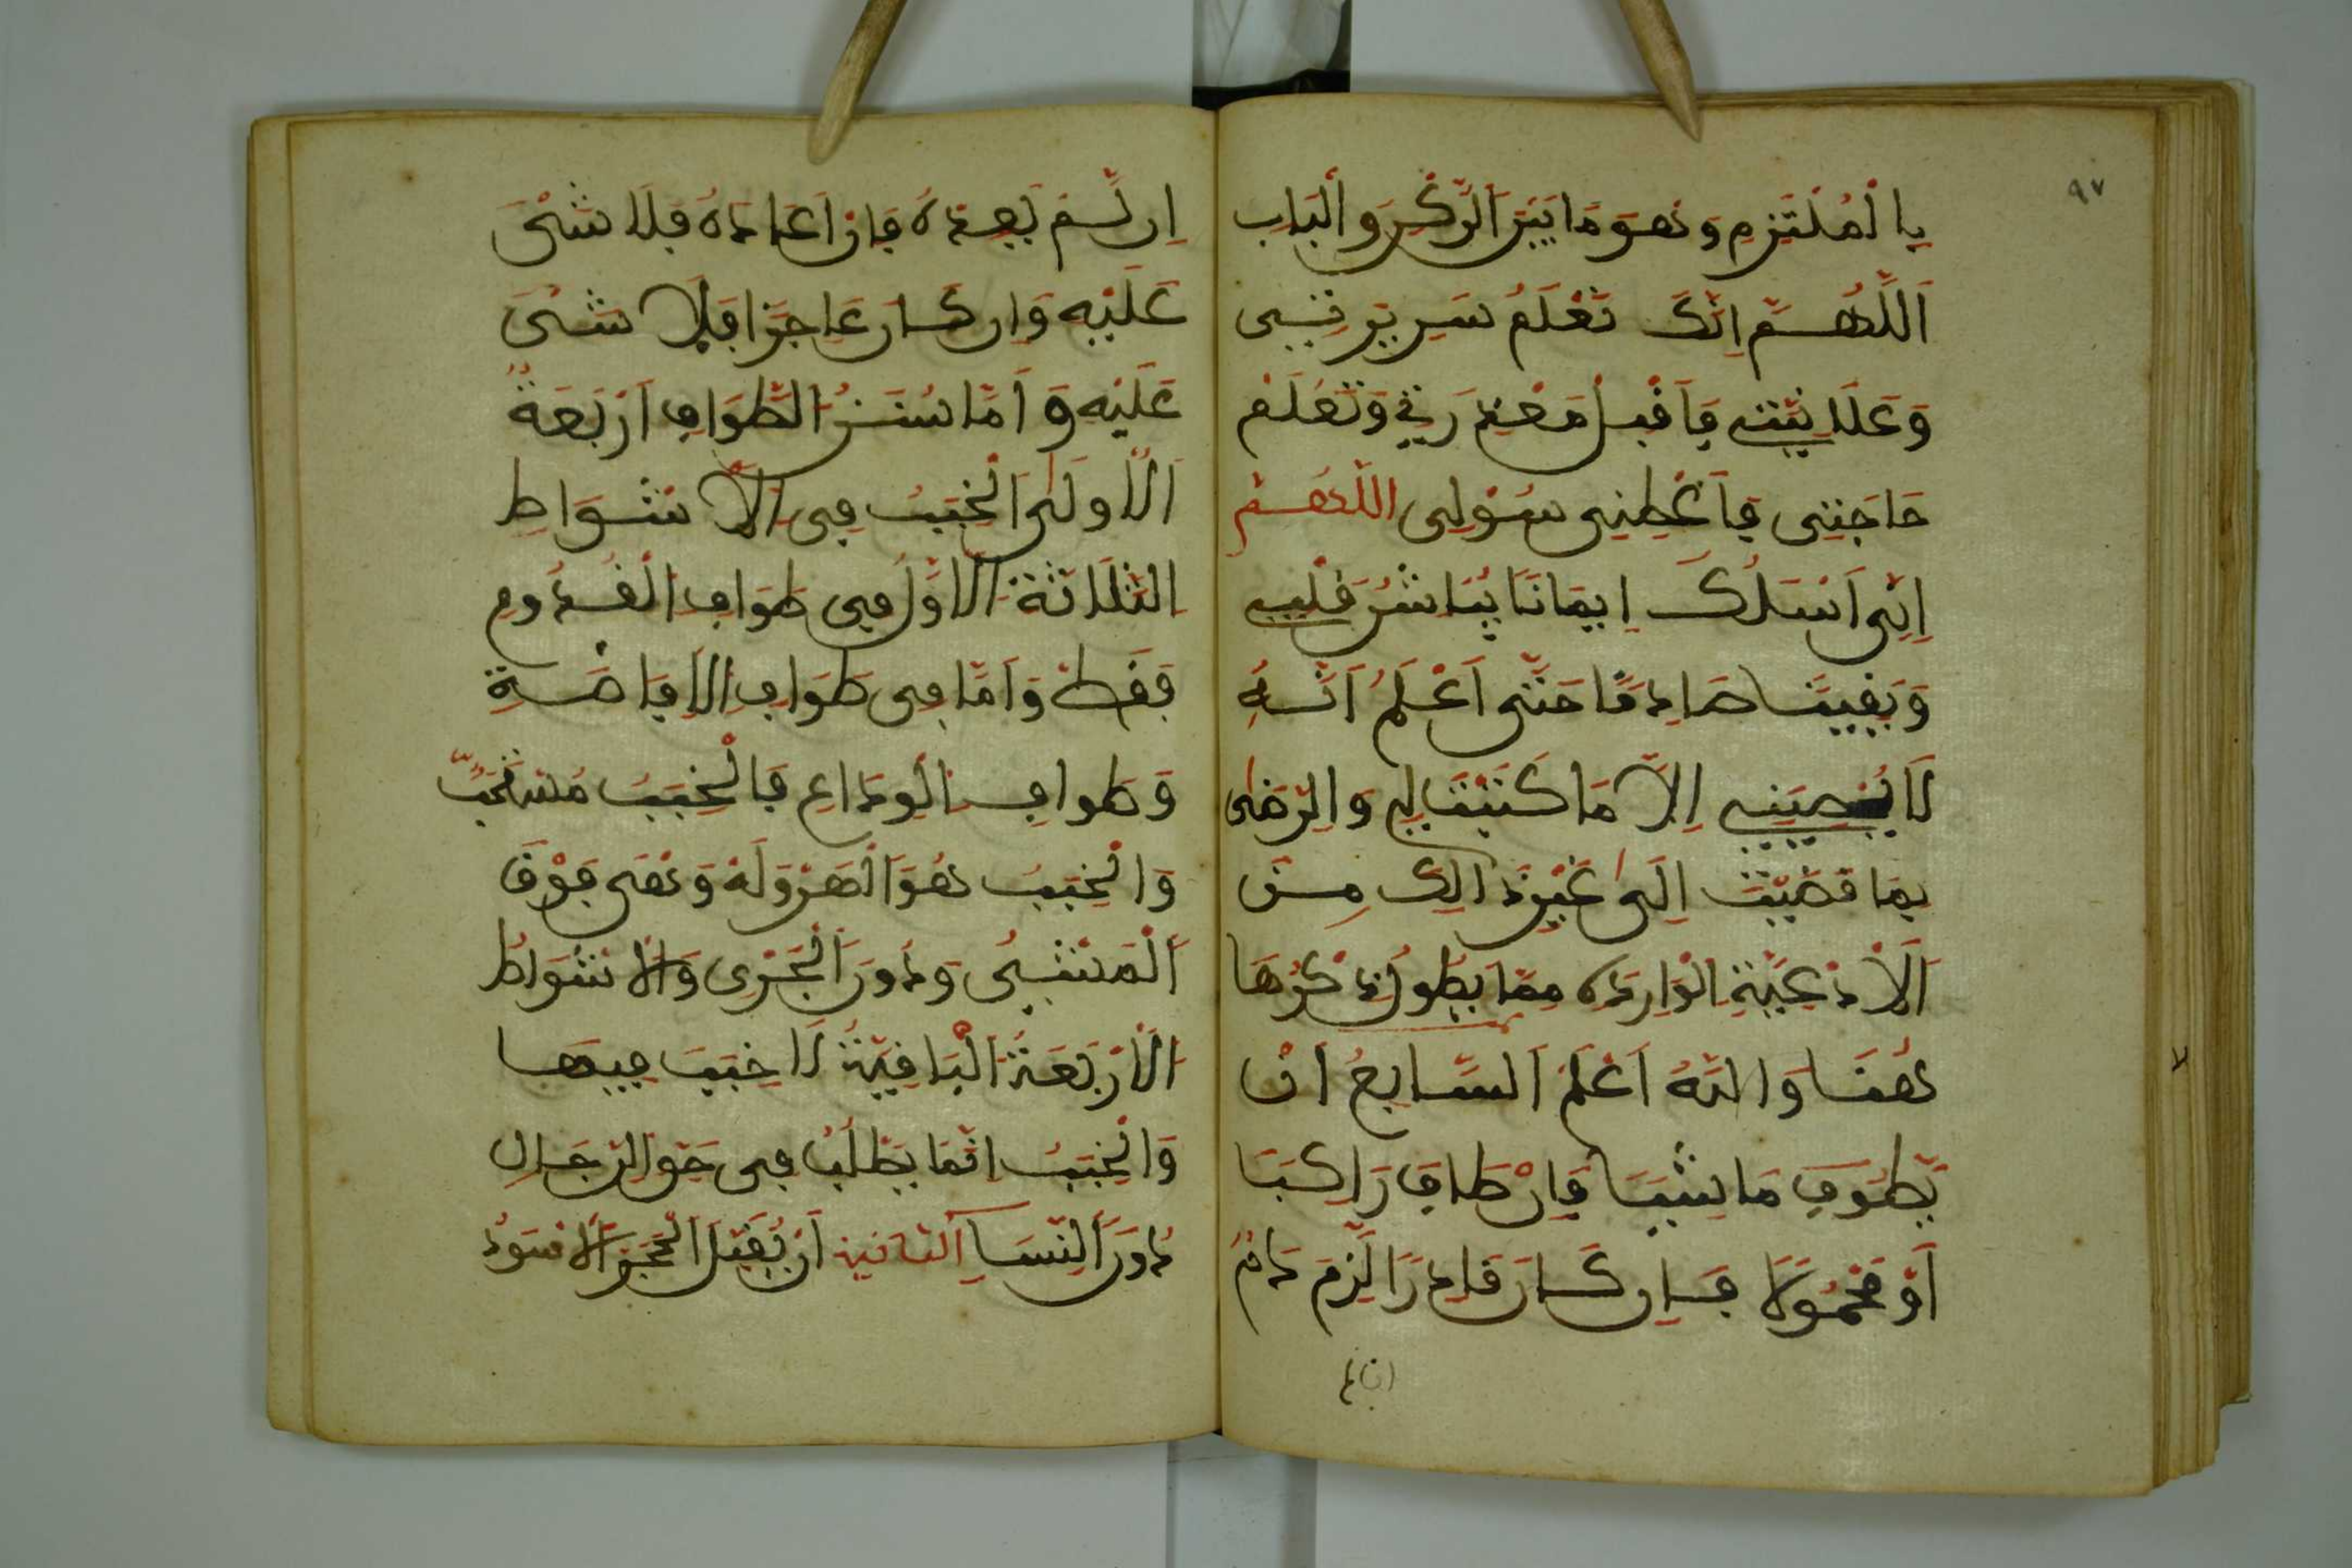 ٩٧
بِالْمُلْتَزِمِ وَهُوَ مَا بَيْنَ الرُّكْنِ وَالْبَابِ
اَللَّهُمَّ اِنَّكَ تَعْلَمُ سَرِيرَتِي
وَعَلَانِيَتِي فَاقْبَلْ مَعْذِرَتِي وَتَعْلَمُ
حَاجَتِي فَأَعْطِنِي سُوْلِي اللَّهُمَّ
اِنِّي اَسْئَلُكَ اِيمَانًا يُبَاشِرُ قَلْبِي
وَيَقِينًا صَادِقًا حَتَّى اَعْلَمُ اَنَّهُ
لَا يُصِيبُنِي اِلَّا مَا كَتَبْتَ لِي وَالرِّضَى
بِمَا قَضَيْتَ اِلَى غَيْرِ ذَالِكَ مِنَ
اَلْاَدْعِيَةِ الْوَارِدَةِ مِمَّا يَطُولُ ذِكْرُهَا
هُنَا وَاللَّهُ اَعْلَمُ السَّابِعُ اَنْ
يَطُوفَ مَاشِيًا فَاِنْ طَافَ رَاكِبًا
اَوْ مَحْمُولًا فَاِنْ كَانَ قَادِرًا لَزِمَ دَمٌ
اِنْ لَمْ يُعِدْهُ فَاِنْ اَعَادَهُ فَلَا شَيْءَ
عَلَيْهِ وَاِنْ كَانَ عَاجِزًا فَلَا شَيْءَ
عَلَيْهِ وَاَمَّا سُنَنُ الطَّوَافِ اَرْبَعَةٌ
اَلْاُولَى اَلْخَبَبُ فِي الْاَشْوَاطِ
الثَّلَاثَةِ الْاُوَلُ فِي طَوَافِ الْقُدُومِ
فَقَطْ وَاَمَّا فِي طَوَافِ الْاِفَاضَةِ
وَطَوَافِ الْوِدَاعِ فَالْخَبَبُ مُسْتَحَبٌّ
وَالْخَبَبُ هُوَ الْهَرْوَلَةُ وَهِيَ فَوْقَ
اَلْمَشْيِ وَدُونَ الْجَرْيِ وَالْاَشْوَاطُ
الْاَرْبَعَةُ الْبَاقِيَةُ لَا خَبَبَ فِيهَا
وَالْخَبَبُ اِنَّمَا يُطْلَبُ فِي حَقِّ الرِّجَالِ
دُونَ النِّسَا الثَّانِيَة اَنْ يُقَبِّلَ الْحَجَرَ الْاَسْوَدَ